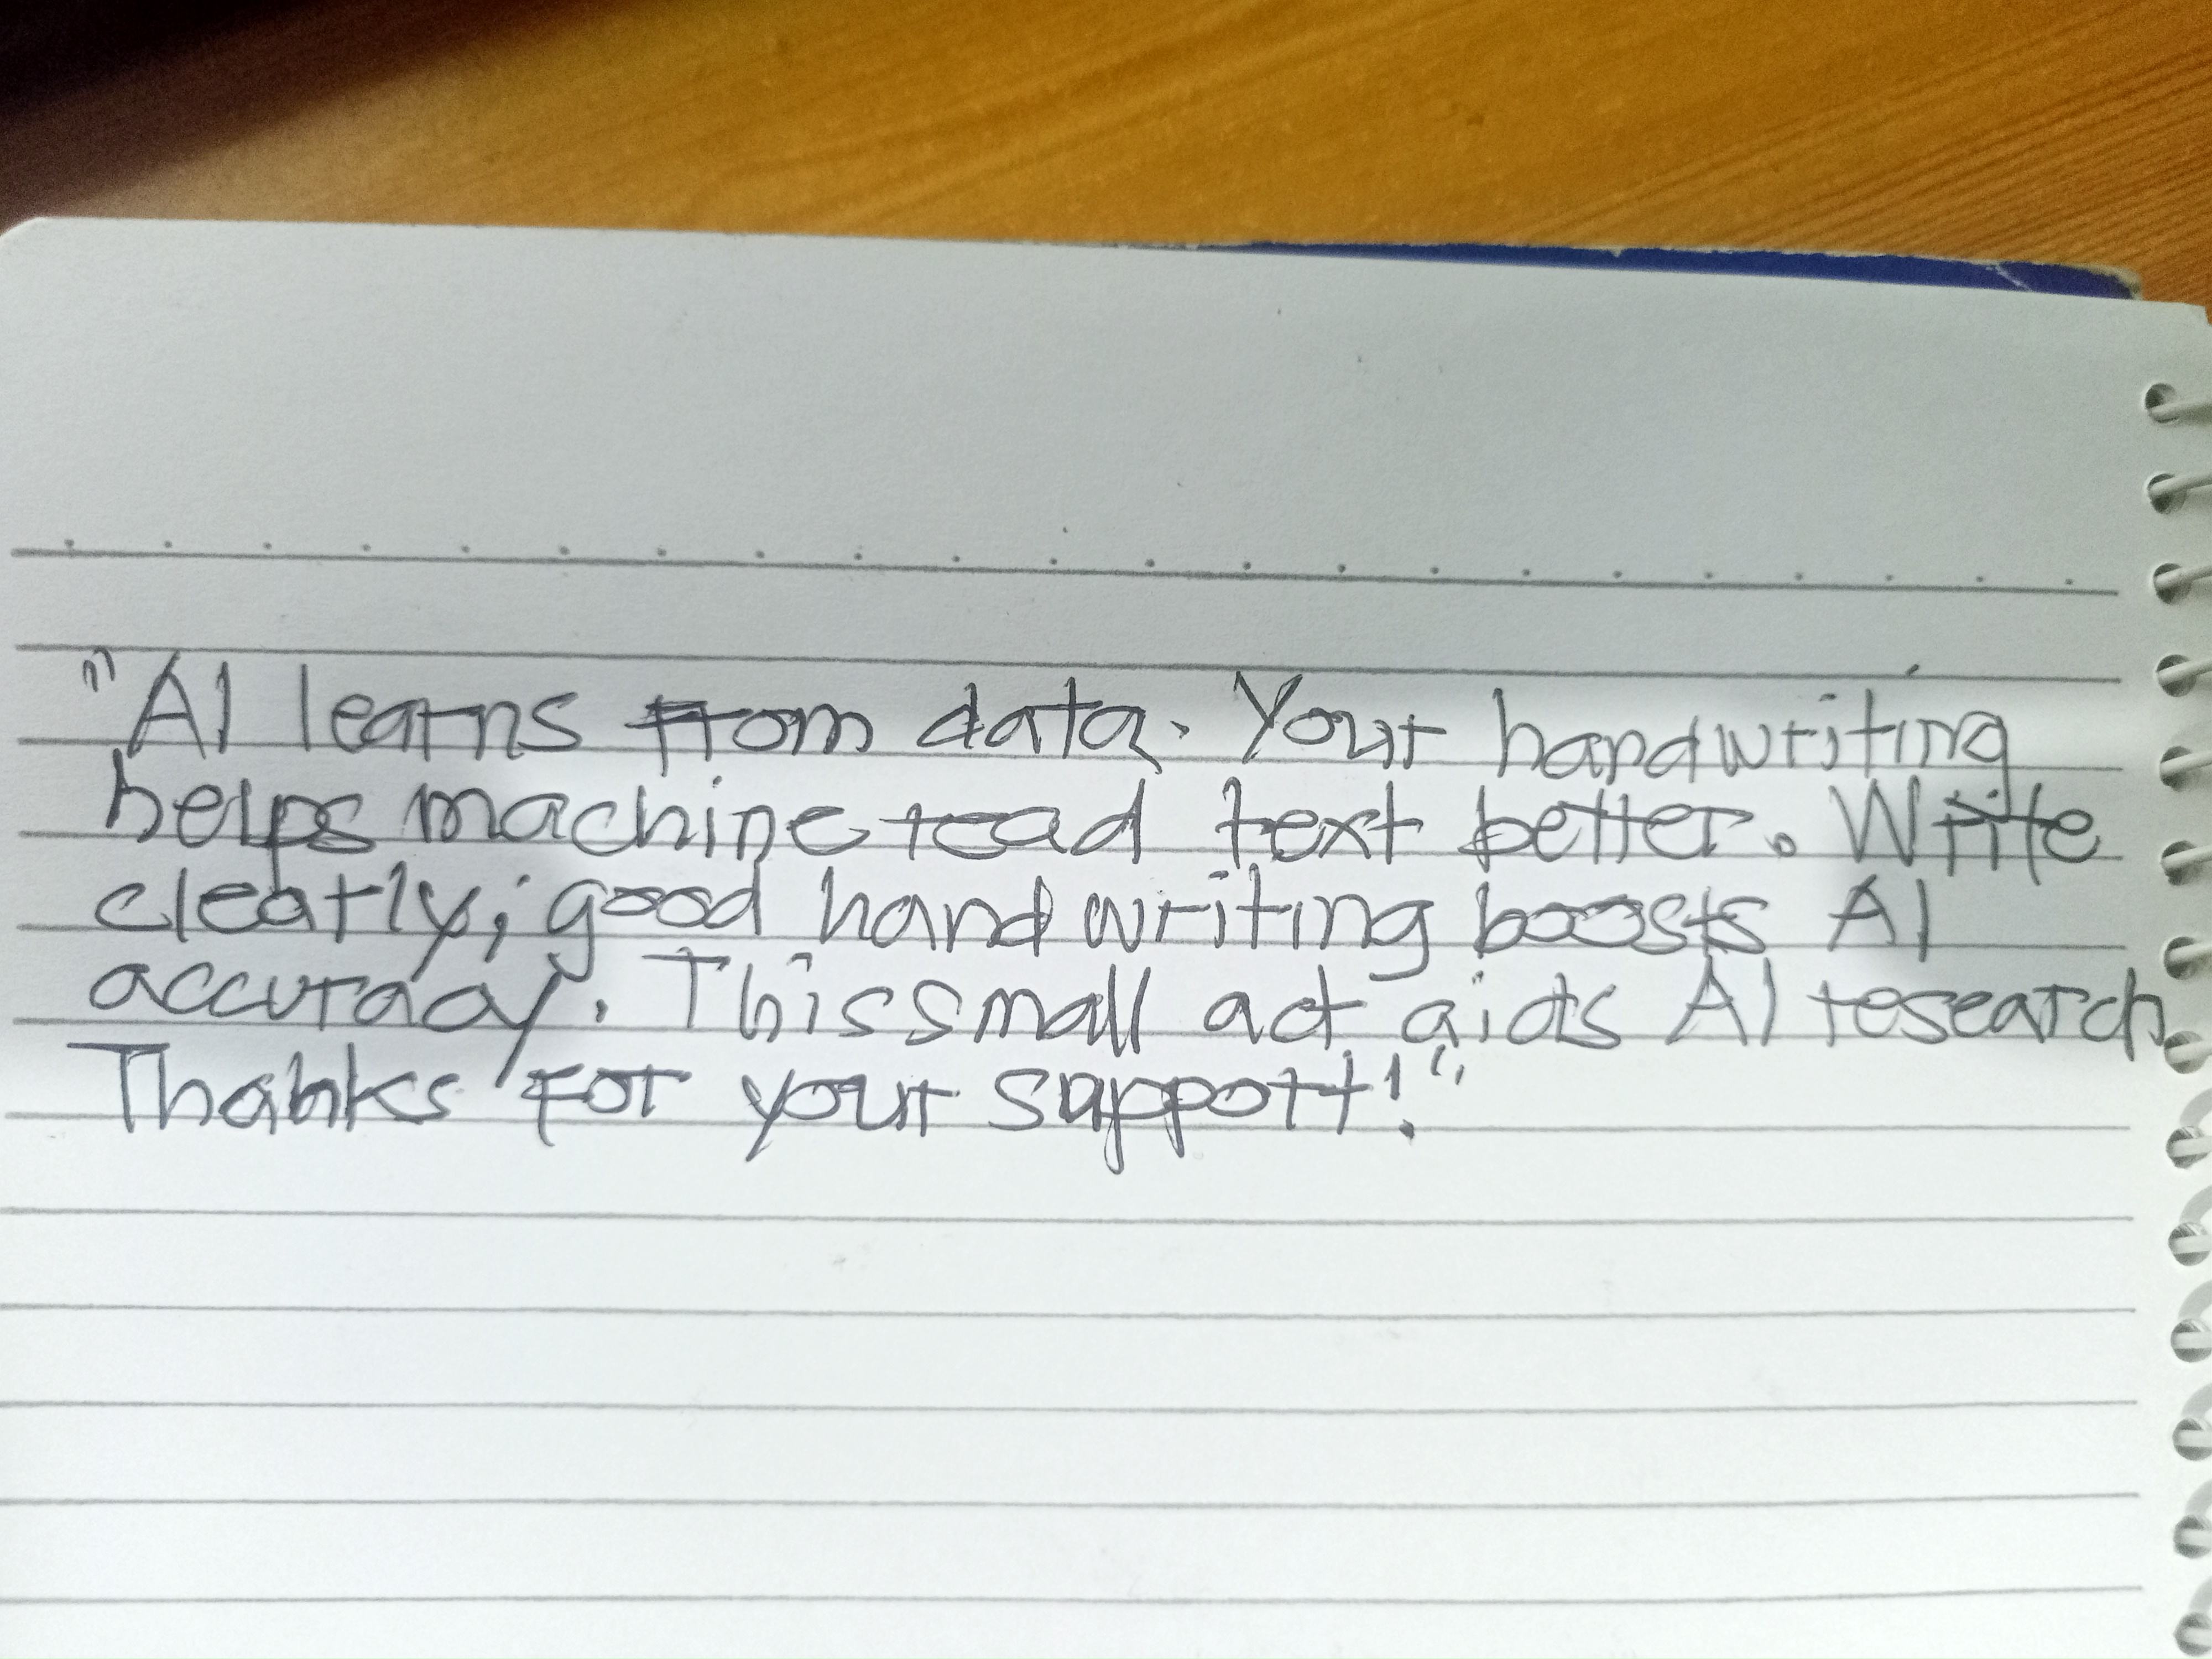 "AI learns from data. Your handwriting
helps machine read text better. Write
clearly; good handwriting boosts AI
accuracy. This small act aids AI research
Thanks for your support!"